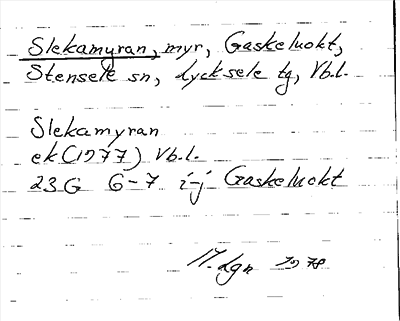 Slekamyran, myr, Gaskeluokt,
Stensele sn, Lycksele tg, Vb.l.
Slekamyran
ek (1977) Vb.l.
23G 6-7 i-j Gaskeluokt
1978